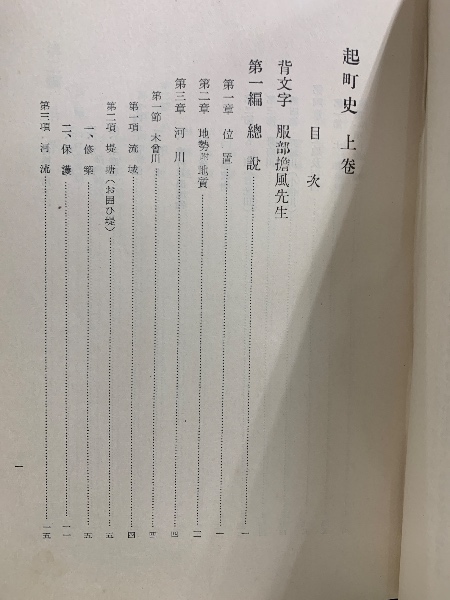 起町史 上巻
目次
背文字 服部擔風先生
第一編 總説 一
第一章 位置 一
第二章 地勢及地質 二
第三章 河川 四
第一節 木曾川 四
第一項 流域 四
第二項 堤塘(お囲ひ堤) 五
一、修築 五
二、保護 一一
第三項 河流 一五
一